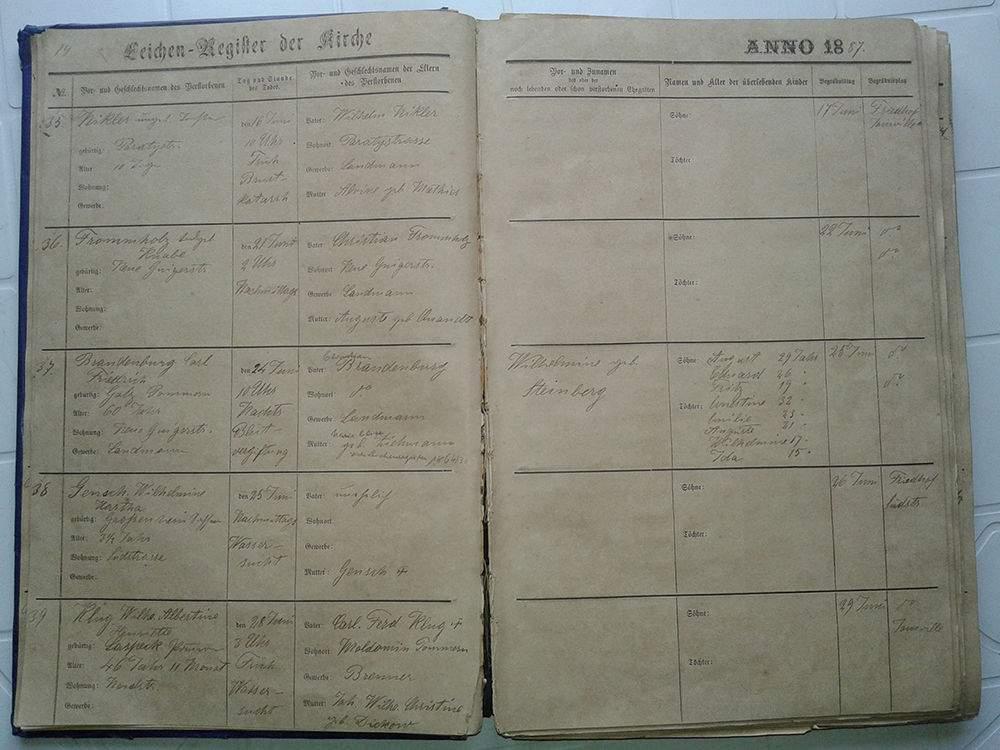 14
Leichen-Register der Kirche
ANNO 1887.
No. Vor- und Geschlechtsnamen des Verstorbenen
Tag und Stunde des Todes.
Vor- und Geschlechtsnamen der Eltern des Verstorbenen
Vor- und Zunamen
des oder der
noch lebenden oder schon verstorbenen Ehegatten
Namen und Alter der überlebenden Kinder
Begräbnißtag
Begräbnißplatz
35 Nikler
gebürtig: Paratystr.
Alter 10 Tage
Wohnung:
Gewerbe:
den 16 Juni
10 Uhr
Früh
Brust-
katarrh
Vater: Wilhelm Nikler
Wohnort: Paratystrasse
Gewerbe: Landmann
Mutter: Alvine geb Mathias
Söhne:
Töchter
17 Juni
Friedhof
36. Frommholz
Knabe
gebürtig: Neue
Alter:
Wohnung:
Gewerbe:
den 21 Juni
2 Uhr
Nachmittags
Vater Christian Frommholz
Wohnort: Neue
Gewerbe: Landmann
Mutter: Auguste geb Quandt
Söhne:
Töchter:
22 Juni
do
do
37. Brandenburg Carl
Friedrich
gebürtig: Pommern
Alter: 60 Jahr
Wohnung: Neue
Gewerbe: Landmann
den 24 Juni
10 Uhr
Nachts
Blut-
vergiftung
Vater: Brandenburg
Wohnort: do
Gewerbe: Landmann
Mutter: geb. Ziehmann
Wilhelmine geb.
Steinberg
Söhne: August 29 Jahr
Eduard 26 "
Fritz 19 "
Töchter: Ernstine 32 "
Emilie 23 "
Auguste 21 "
Wilhelmine 17 "
Ida 15 "
25 Juni
do
do
38 Gensch, Wilhelmine
Martha
gebürtig: Großenhain
Alter: 3½ Jahr
Wohnung: Südstrasse
Gewerbe:
den 25 Juni
Nachmittags
Wasser-
sucht
Vater: unehlich
Wohnort:
Gewerbe:
Mutter: Gensch
Söhne:
Töchter:
26 Juni
Friedhof
Südstr.
39 Klug Wilhe. Albertine
gebürtig:
Alter: 46 Jahr 11 Monat
Wohnung: Nordstr.
Gewerbe:
den 28 Juni
3 Uhr
Früh
Wasser-
sucht
Vater: Carl. Ferd Klug
Wohnort: Pommern
Gewerbe: Brenner
Mutter: Joh. Wilhe. Christine
geb Dickow
Söhne:
Töchter:
29 Juni
do